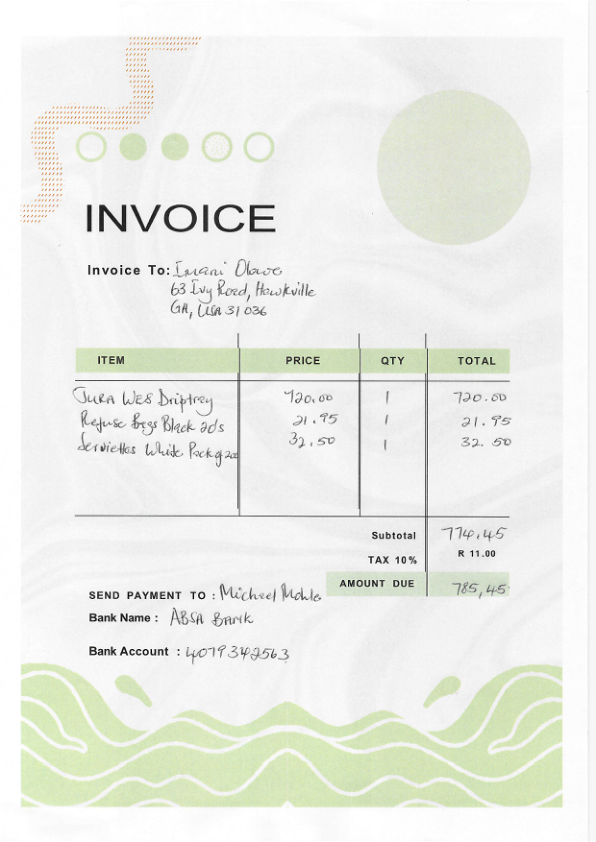 INVOICE
Invoice To: Imani Olowo
63 Ivy Road, Hawkville
GA, USA 31036
ITEM PRICE QTY TOTAL
JURA WE8 Driptray 720.00 1 720.00
Refuse Bags Black 20s 21.95 1 21.95
Serviettes White Pack of 200 32.50 1 32.50
Subtotal 774.45
TAX 10% R 11.00
AMOUNT DUE 785,45
SEND PAYMENT TO : Michael
Bank Name : ABSA BANK
Bank Account : 4079342563